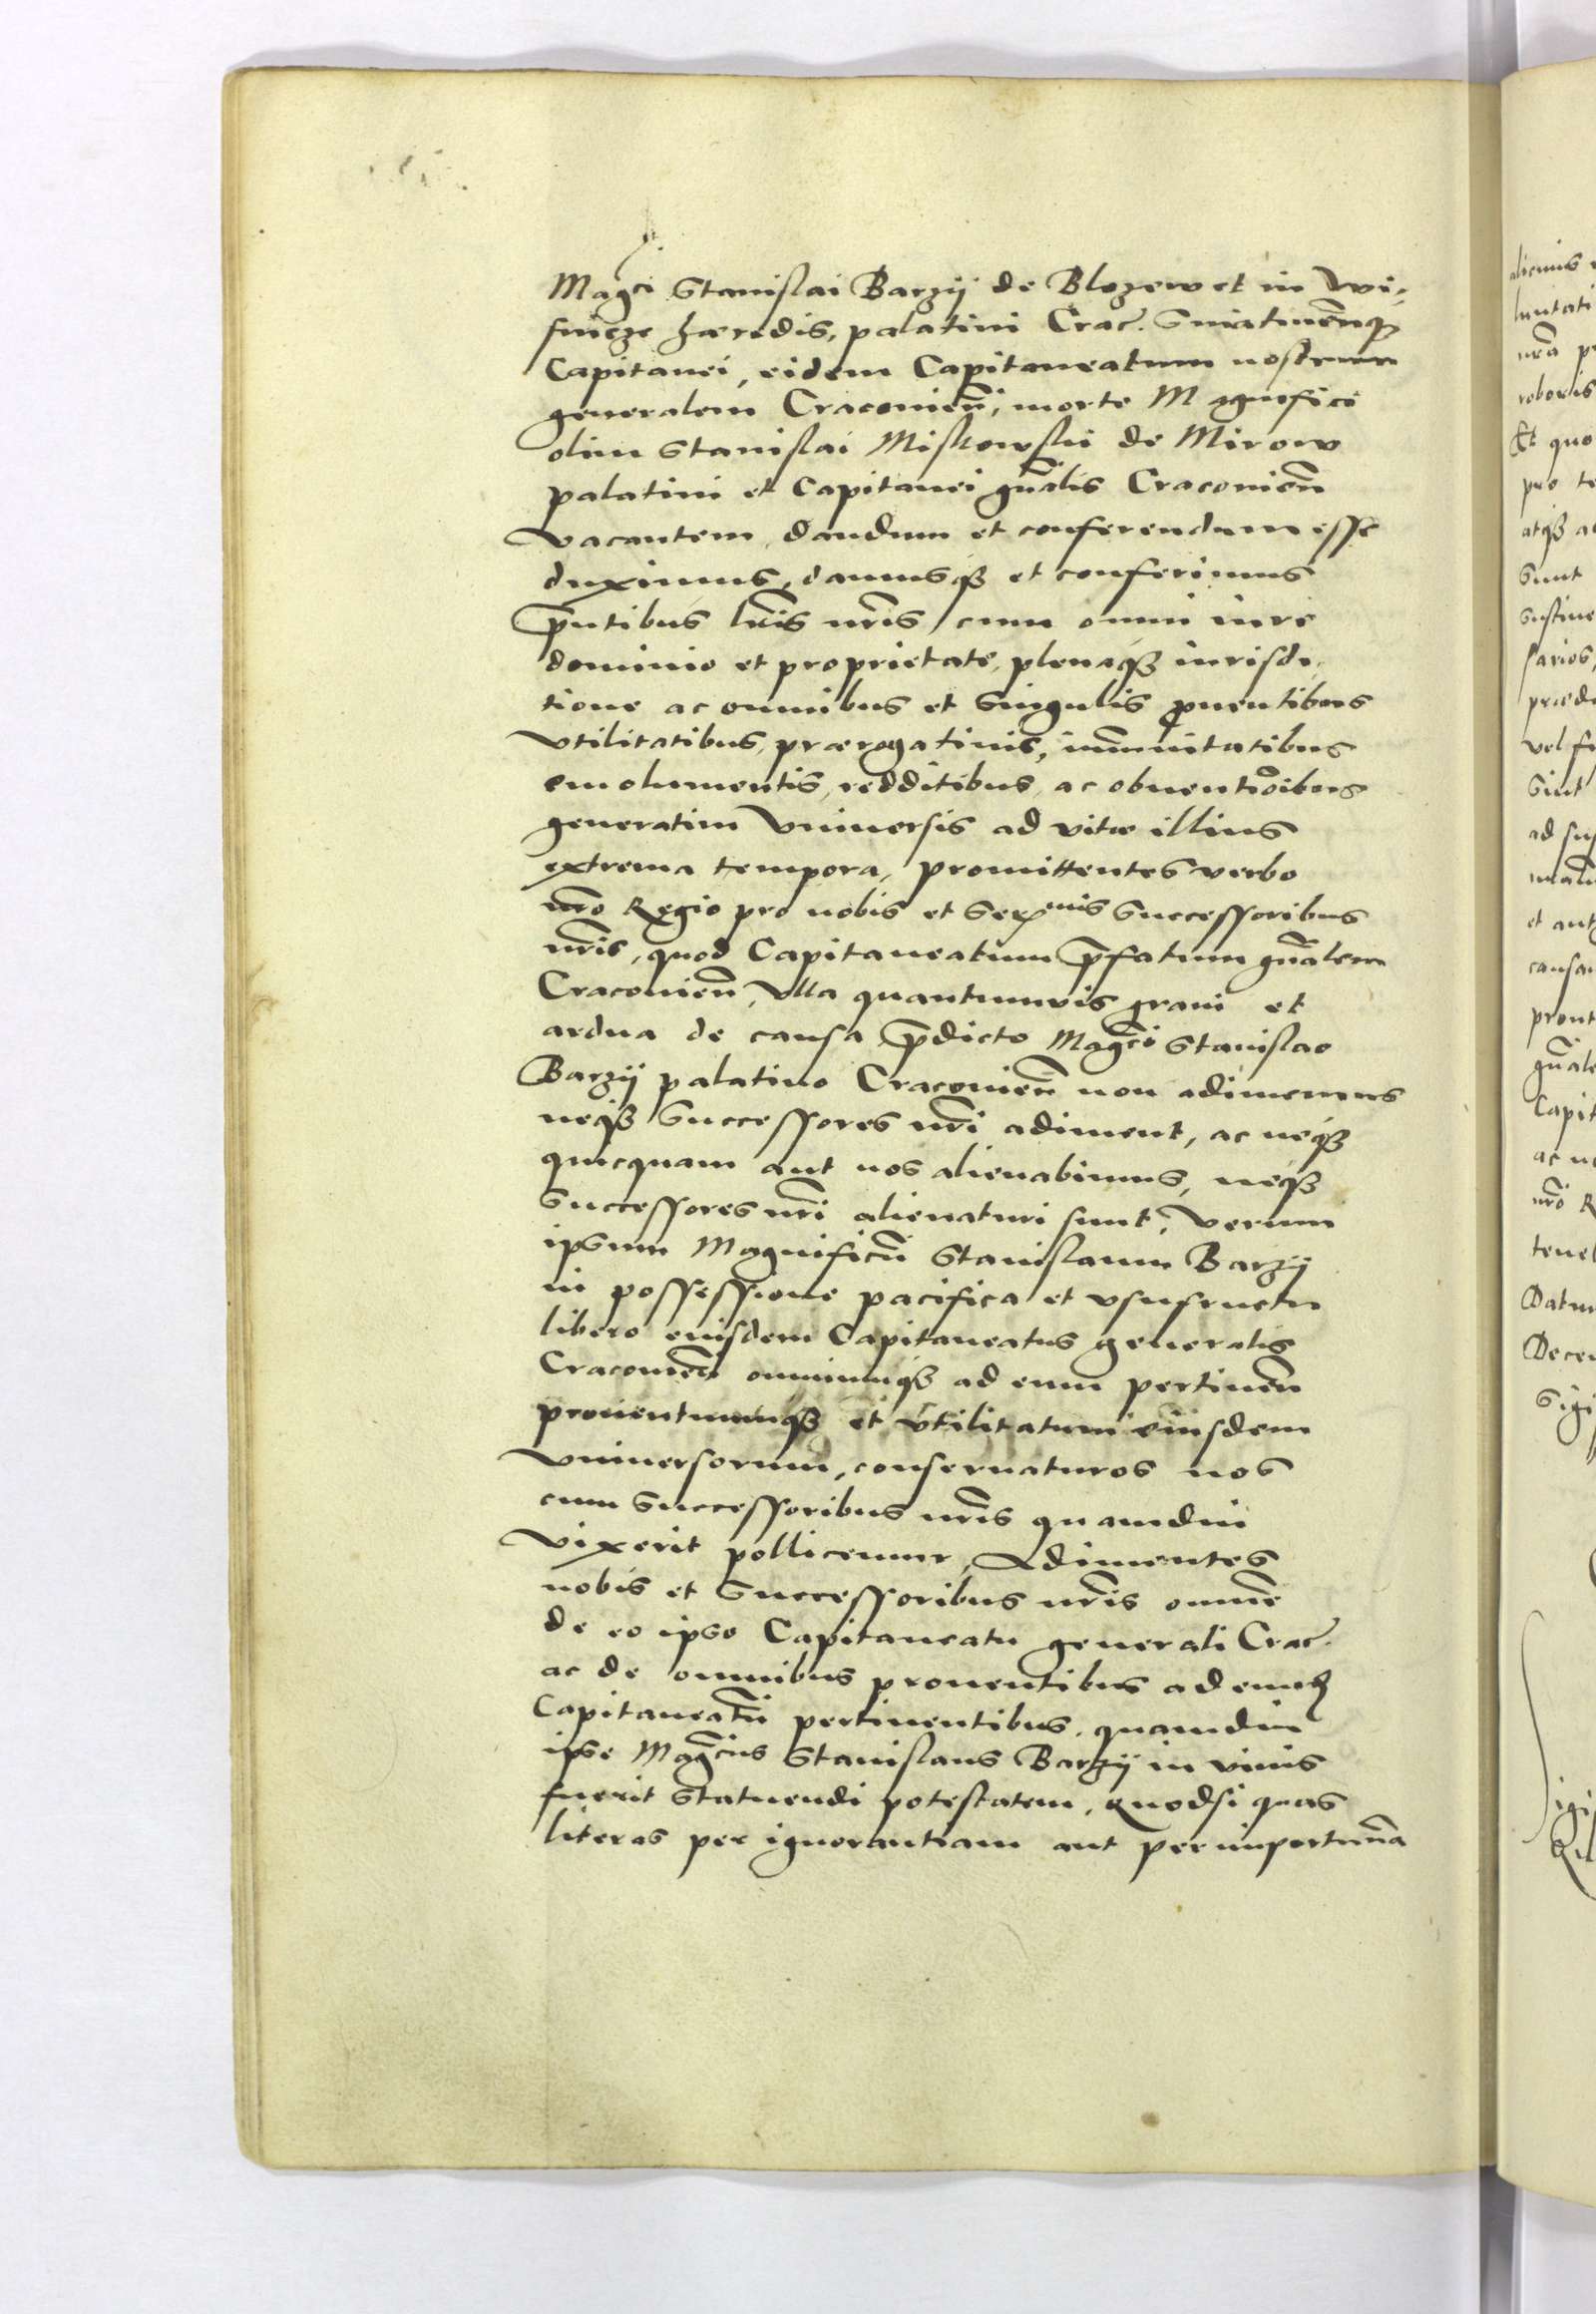 Mag^ci Stanislai Barzij de Blozew et in Wi-
snicze hæredis, palatini Crac. Sniatinen̄q₃
Capitanei, eidem Capitaneatum nostrum
generalem Cracovien̄, morte Magnifici
olim Stanislai Miskowski de Mirow
palatini et Capitanei gn̄alis Cracovien̄
vacantem, dandum et conferendum esse
duximus, damusq₃ et conferimus
p̄ntibus lr̄is nr̄is, cum omni iure
dominio et proprietate, plenaq₃ iurisdi-
tione ac omnibus et singulis proventibus
vtilitatibus, prærogatiuis, im̄unitatibus
emolumentis, redditibus, ac obuentiōibus
generatim vniuersis ad vitæ illius
extrema tempora, promittentes verbo
nr̄o Regio pro nobis et Ser^mis Successoribus
nr̄is, quod Capitaneatum p̄fatum gn̄alem
Cracovien̄, vlla quantumuis graui et
ardua de causa p̄dicto Mag^co Stanislao
Barzij palatino Cracovien̄ non adimemus
neq₃ Successores nr̄i adiment, ac neq₃
quicquam aut nos alienabimus, neq₃
Successores nr̄i alienaturi sunt, Verum
ipsum Magnificū Stanislaum Barzij
in possessione pacifica et vsufructu
libero eiusdem Capitaneatus generalis
Cracovien̄ omniumq₃ ad eum pertinen̄
prouentuumq₃ et vtilitatum eiusdem
vniuersorum, conseruaturos nos
cum Successoribus nr̄is quamdiu
vixerit pollicemur, Adimentes
nobis et Successoribus nr̄is omnē
de eo ipso Capitaneatu generali Crac.
ac de omnibus prouentibus ad eund
Capitaneatū pertinentibus, quamdiu
ipse Mag^cus Stanislaus Barzij in viuis
fuerit statuendi potestatem, Quodsi quas
literas per ignorantiam aut per importunā